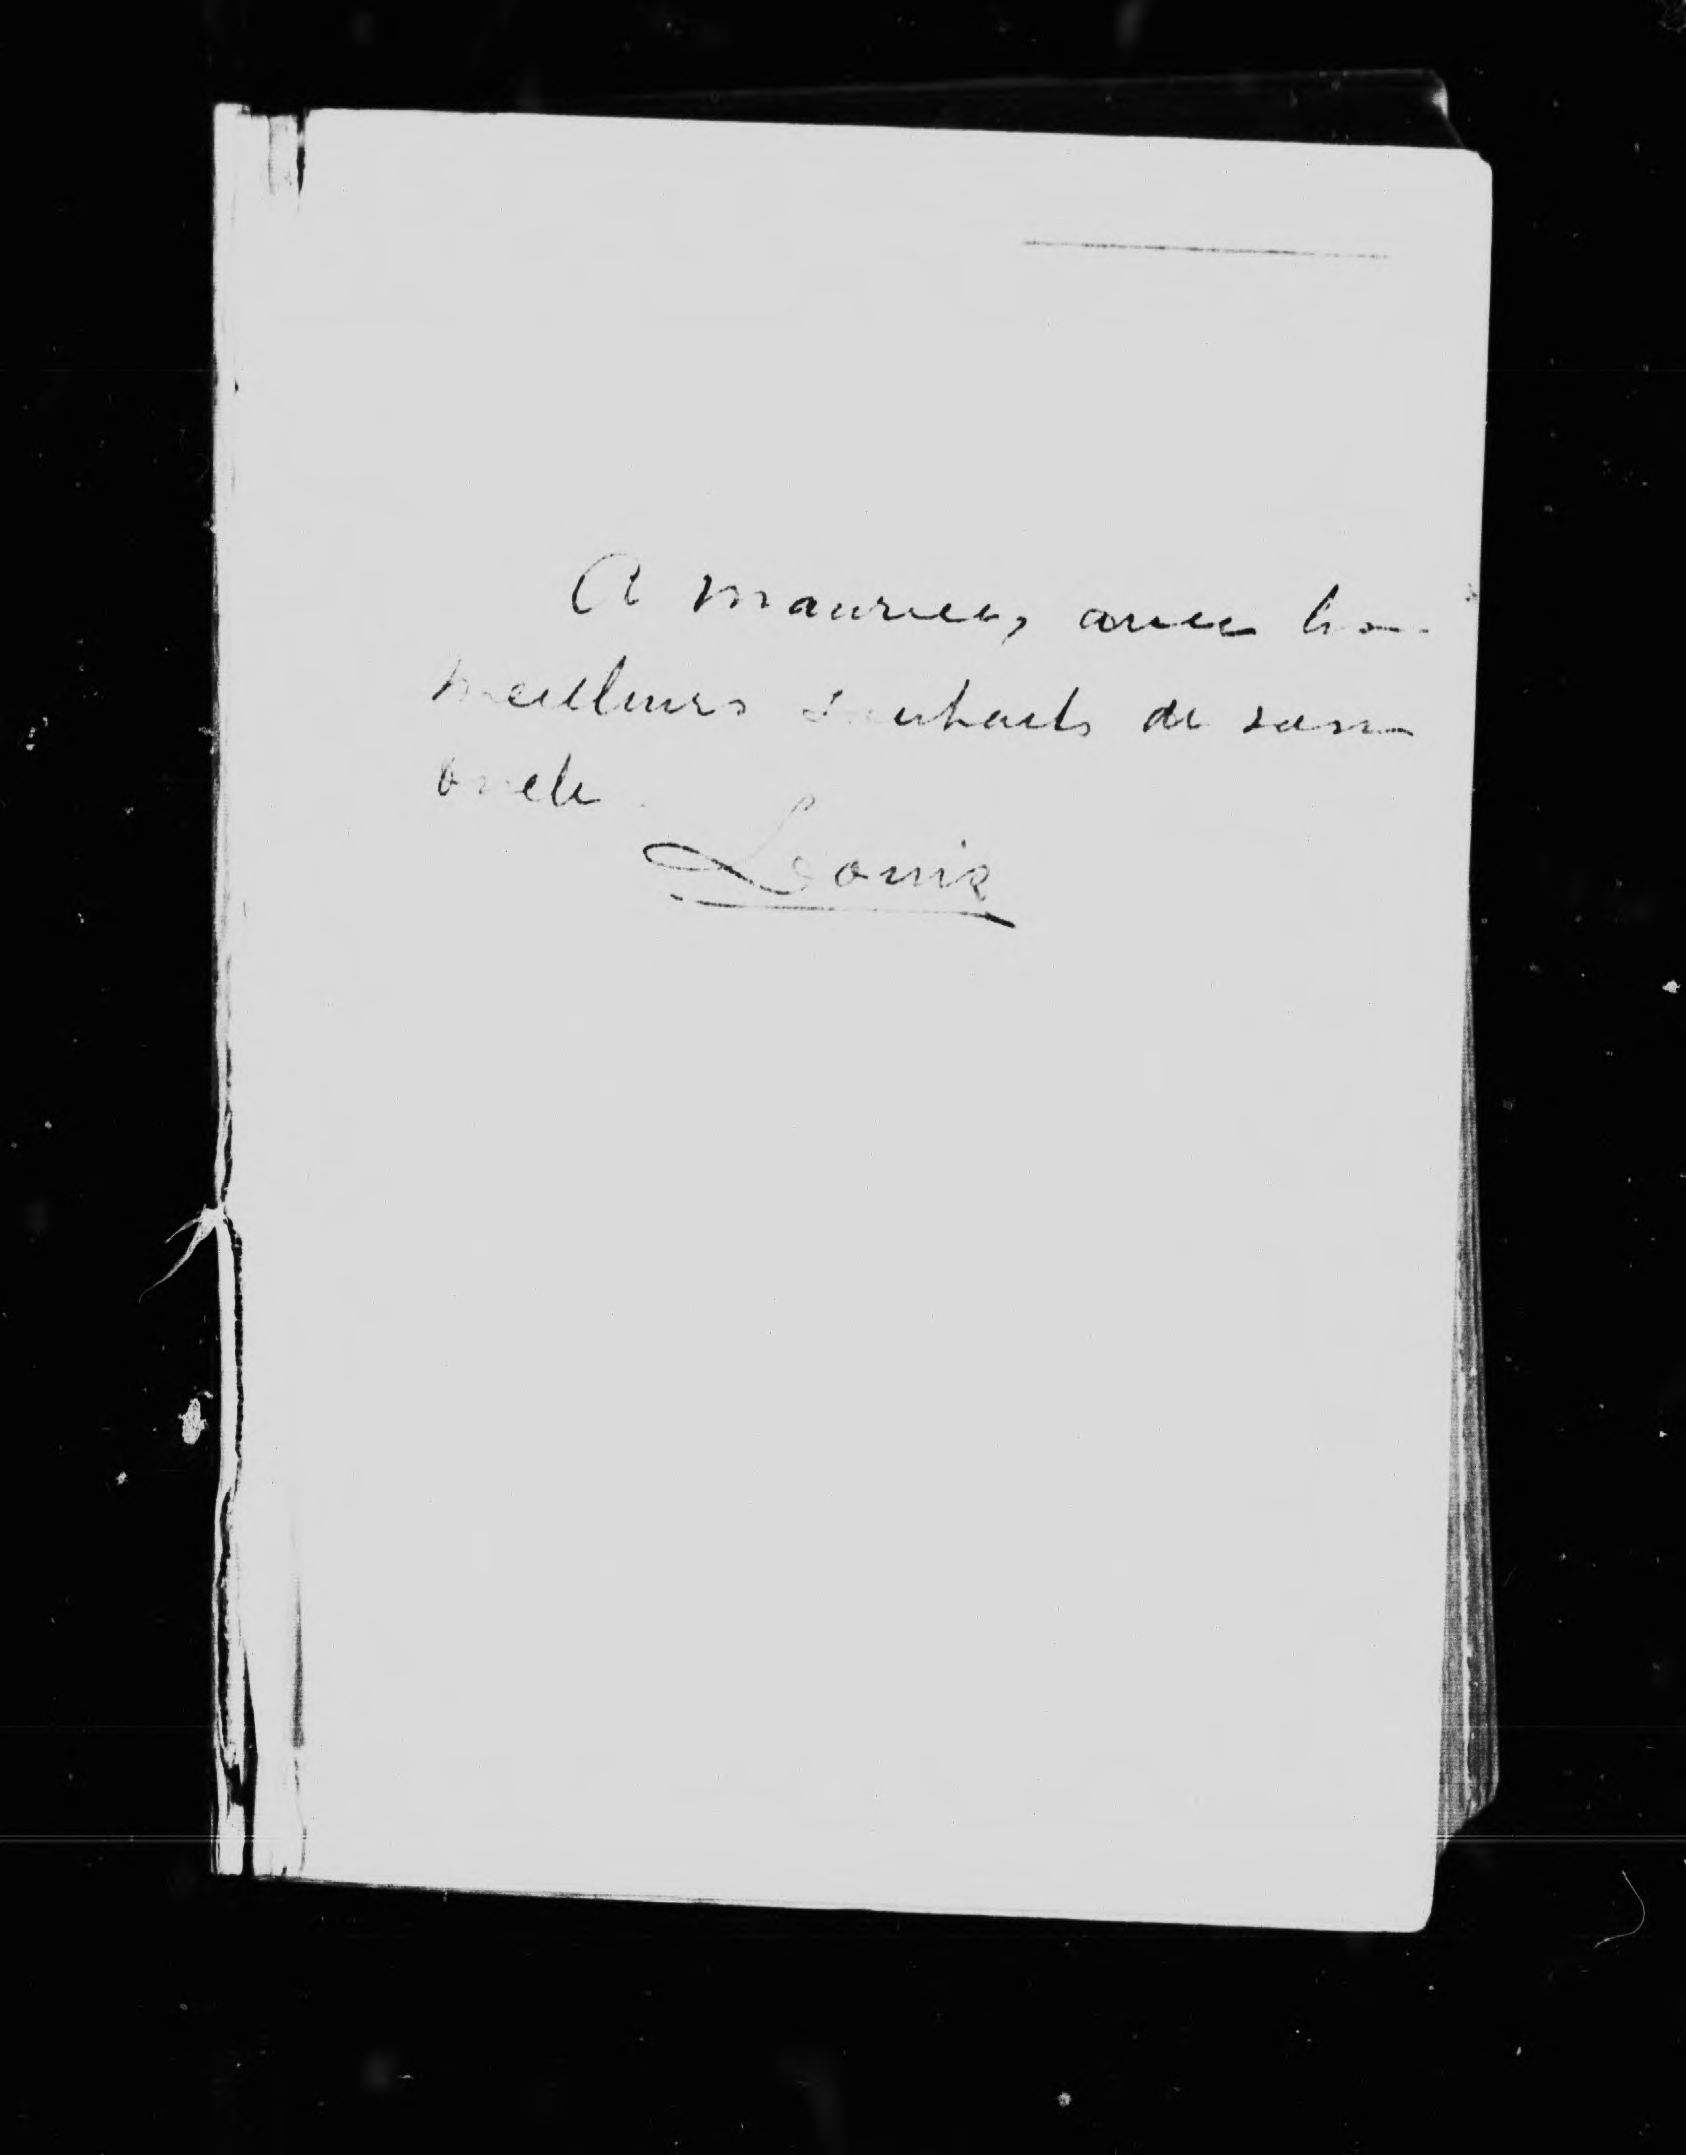 A Maurice, avec les
meilleurs souhaits de son
oncle
Louis